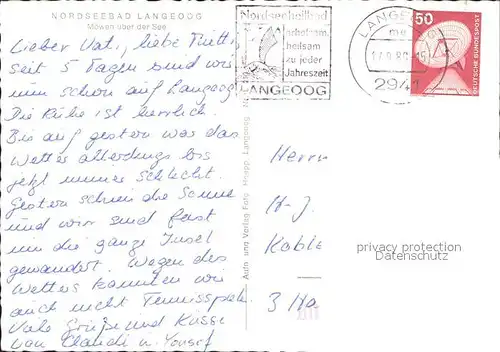 NORDSEEBAD LANGEOOG
Möwen über der See
Lieber Vati, liebe
seit 5 Tagen sind wir
nun schon auf Langeoog
Die Ruhe ist herrlich.
Bis auf gestern war das
Wetter allerdings bis
jetzt immer schlecht.
Gestern schien die Sonne
und wir sind fast
um die ganze Insel
gewandert. Wegen des
Wetters konnten wir
auch nicht Tennisspielen
Viele Grüße und Küsse
von Claudi u. Yousef
Nordseeheilbad
erholsam,
heilsam
zu jeder
Jahreszeit
LANGEOOG
LANGEOOG
2941
50
DEUTSCHE BUNDESPOST
Verlag Foto Langeoog
Herrn
H.-J.
3 Ha
privacy protection
Datenschutz